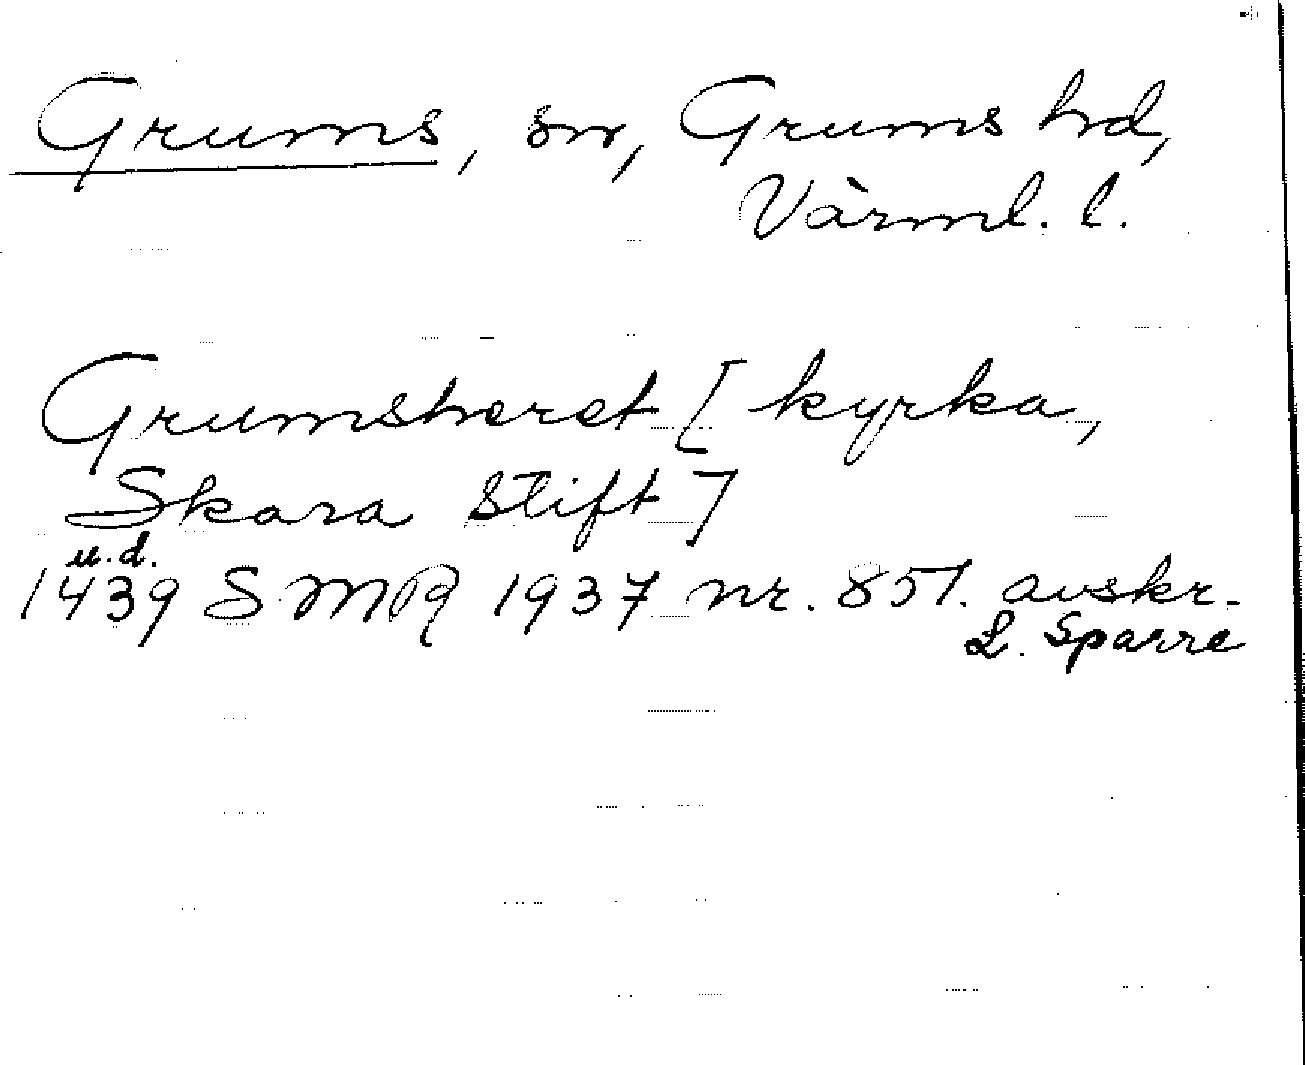 Grums, sn, Grums hd,
Värml. l.
Grumsheret [kyrka,
Skara Stift]
u.d.
1439 SMR 1937 nr. 851. avskr.
L. Sparre